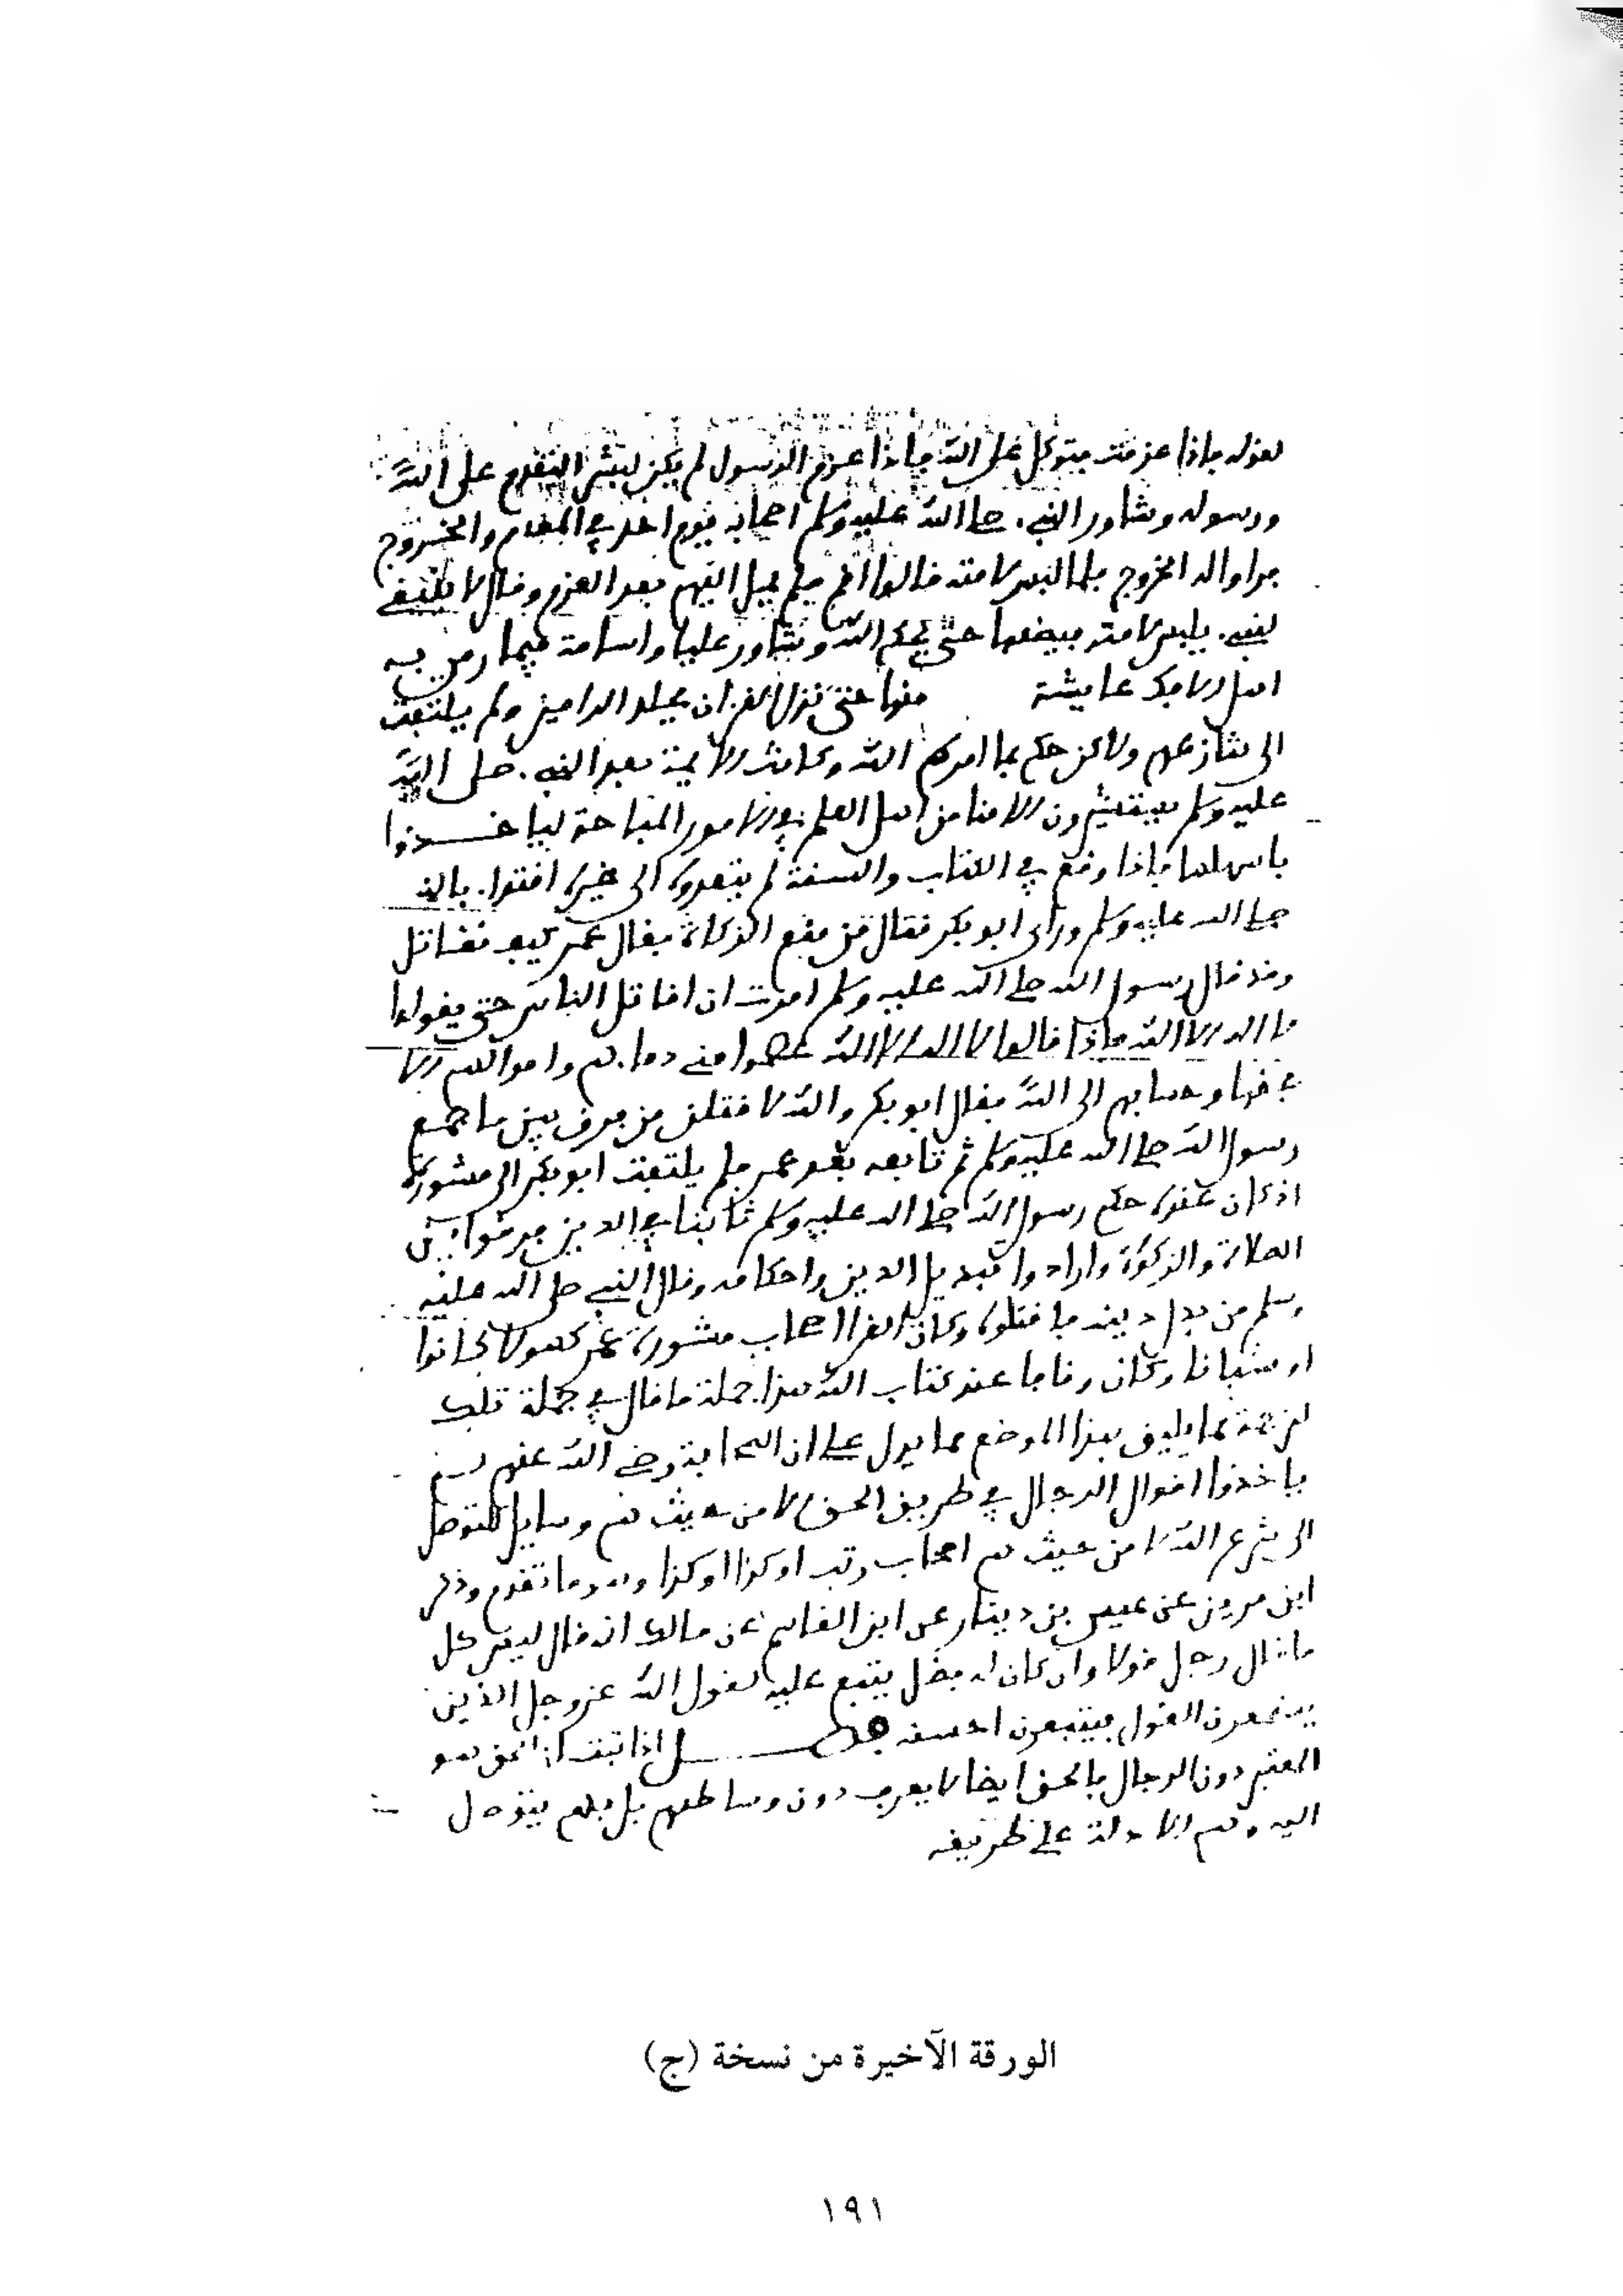 لقوله فإذا عزمت فتوكل على الله فإذا عزم الرسول لم يكن لبشر التقدم على الله
ورسوله وشاور النبي صلى الله عليه وسلم أصحابه يوم أحد في المقام والخروج
فرأوا له الخروج فلما لبس لامته قالوا أقم فلم يمل إليهم بعد العزم وقال لا ينبغي
لنبي يلبس لامته فيضعها حتى يحكم الله وشاور عليا وأسامة فيما رمى به
أهل الإفك عايشة منها حتى نزل القرآن فجلد الرامين ولم يلتفت
إلى تنازعهم ولاكن حكم بما أمره الله وكانت الأيمة بعد النبي صلى الله
عليه وسلم يستشيرون الأمنا من أهل العلم في الأمور المباحة ليأخذوا
بأسهلها فإذا وقع في الكتاب والسنة لم يتعدوه إلى غيره اقتدا بالنبي
صلى الله عليه وسلم ورأى أبو بكر قتال من منع الزكاة فقال عمر كيف تقاتل
وقد قال رسول الله صلى الله عليه وسلم أمرت أن أقاتل الناس حتى يقولوا
لا اله الا الله فإذا قالوا لا اله الا الله عصموا مني دماءهم وأموالهم الا
بحقها وحسابهم إلى الله فقال أبو بكر والله لأقاتلن من فرق بين ما جمع
رسول الله صلى الله عليه وسلم ثم تابعه بعد عمر فلم يلتفت أبو بكر إلى مشورة
إذ كان عنده حكم رسول الله صلى الله عليه وسلم ثابتا في الذين فرقوا بين
الصلاة والزكوة وأرادوا تبديل الدين وأحكامه وقال النبي صلى الله عليه
وسلم من بدل دينه فاقتلوه وكان القرا أصحاب مشورة عمر كهولا كانوا
أو شبانا وكان وقافا عند كتاب الله هذا جملة ما قال في جملة تلك
الترجمة مما يليق بهذا الموضع مما يدل على ان الصحابة رضي الله عنهم لم
يأخذوا أقوال الرجال في طريق الحق إلا من حيث هم وسايل للتوصل
إلى شرع الله لا من حيث هم أصحاب رتب أو كذا أو كذا وهو ما تقدم وذكر
ابن مزين عن عيسى بن دينار عن ابن القاسم عن مالك انه قال ليس كل
ما قال رجل قولا وان كان له فضل يتبع عليه لقول الله عز وجل الذين
يستمعون القول فيتبعون أحسنه فصل إذا ثبت ان الحق هو
المعتبر دون الرجال فالحق أيضا لا يعرف دون وسائطهم بل بهم يتوصل
إليه وهم الادلة على طريقه
الورقة الآخيرة من نسخة (ج)
١٩١